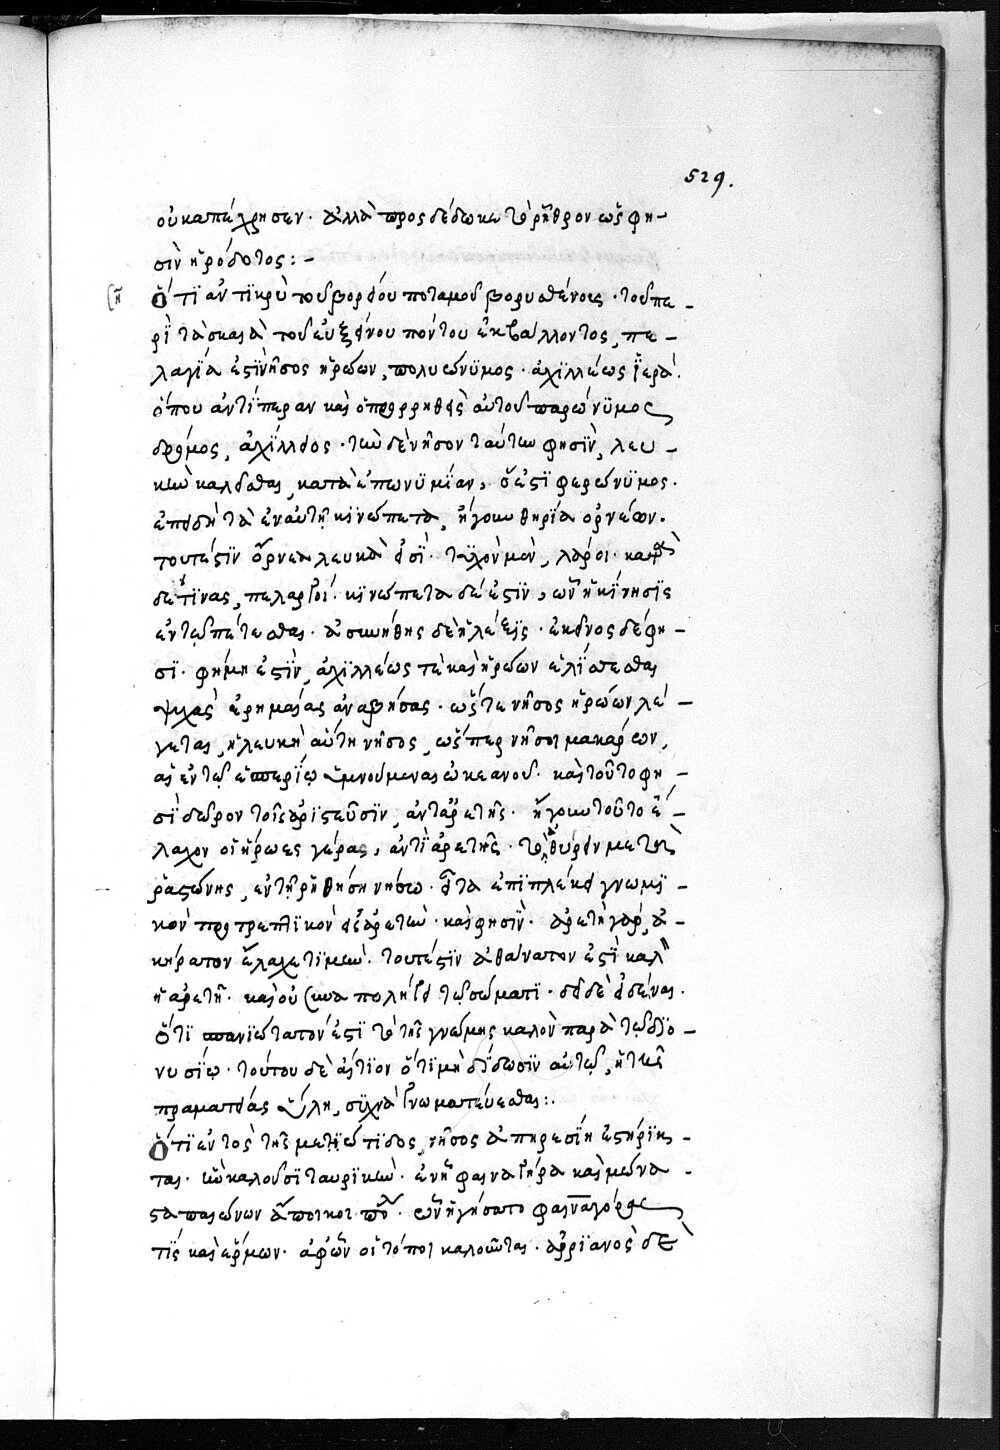 529.
οὐκ ἀπέχρησεν· ἀλλὰ προσδέδωκε τὸ ῥεῖθρον ὥς φη-
σὶν ἡρόδοτος: -
ση ὅτι ἀντικρὺ τοῦ βορείου ποταμοῦ βορυσθένους· τοῦ πε-
ρὶ τὰ σκαιὰ τοῦ εὐξείνου πόντου ἐκβάλλοντος, πε-
λαγία ἐστὶ νῆσος ἡρώων, πολυώνυμος· ἀχιλλέως ἱερά.
ὅπου ἀντιπέραν καὶ ὁ προρρηθεὶς αὐτοῦ παρώνυμος
δρόμος, ἀχίλλειος· τὴν δὲ νῆσον ταύτην φησὶν, λευ-
κὴν καλεῖσθαι, κατὰ ἐπωνυμίαν, ὅ ἐστι φερώνυμος.
ἐπειδὴ τὰ ἐν αὐτῇ κινώπετα, ἤγουν θηρία ὀρνέων.
τουτέστιν ὄρνεα λευκὰ εἰσί· τυχὸν μὲν, λάροι· κατὰ
δέ τινας, πελαργοί· κινώπετα δέ ἐστιν, ὧν ἡ κίνησις
ἐν τῷ πέτεσθαι. ἀσυνήθης δὲ ἡ λέξις· ἐκεῖνος δέ φη-
σι. φήμη ἐστὶν, ἀχιλλέως τε καὶ ἡρώων ἑλίσσεσθαι
ψυχὰς ἐρημαίας ἀνὰ βήσσας· ὥστε νῆσος ἡρώων λέ-
γεται, ἡ λευκὴ αὕτη νῆσος, ὥσπερ νῆσοι μακάρων,
αἱ ἐν τῷ ἑσπερίῳ ὑμνούμεναι ὠκεανοῦ. καὶ τοῦτο φη-
σὶ δῶρον τοῖς ἀριστεῦσιν, ἀντ' ἀρετῆς· ἤγουν τοῦτο ἔ-
λαχον οἱ ἥρωες γέρας, ἀντὶ ἀρετῆς· τὸ θύρειν μετὰ
ῥαστώνης, ἐν τῇ ῥηθείσῃ νήσῳ. εἶτα ἐπιπλέκει γνωμι-
κὸν προτρεπτικὸν εἰς ἀρετήν· καὶ φησίν· ἀρετὴ γάρ, ἀ-
κήρατον ἔλαχε τιμήν. τουτέστιν ἀθάνατον ἐστὶ καλὸν
ἡ ἀρετή. καὶ οὐ συναπολήγει τῷ σώματι· οὐδὲ εἰσένας.
ὅτι σπανιώτατόν ἐστι τὸ τῆς γνώμης καλὸν παρὰ τῷ διο-
νυσίῳ. τούτου δὲ αἴτιον ὅτι μὴ δίδωσιν αὐτῷ, ἡ τῆς
πραματείας ὕλη, συχνὰ γνωματεύεσθαι:.
ὅτι ἐντὸς τῆς μαιώτιδος, νῆσος ἀπηρεσίη ἐστήρικ-
ται. ἣν καλοῦσι ταυρικήν. ἐν ᾗ φαιναγόρα καὶ μεγά-
λα πας ἰώνων ἄποικοι πόλις. ὧν ἡγήσατο φαιναγόρας
τίς καὶ ἕρμων· ἀφ' ὧν οἱ τόποι καλοῦνται. ἀρριανὸς δὲ